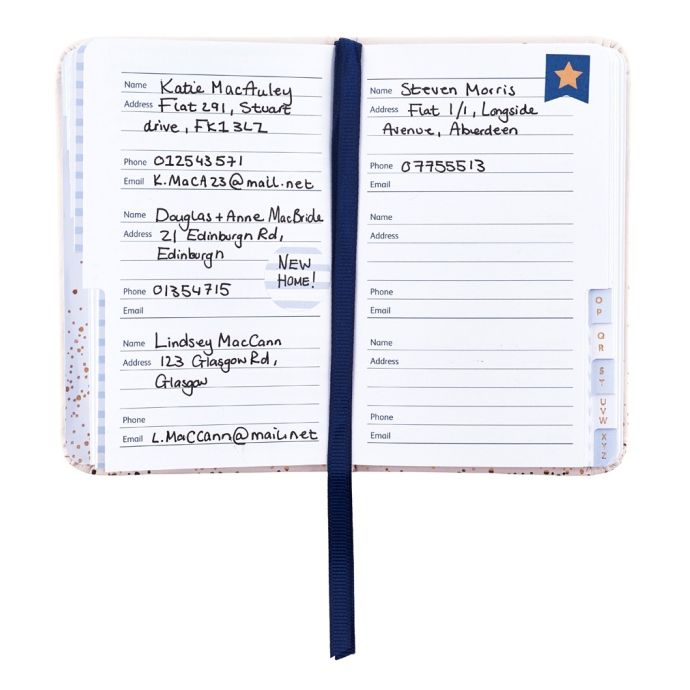 Name Katie MacAuley
Address Flat 291, Stuart
drive, FK1 3LZ
Phone 012543571
Email K.MacA23@mail.net
Name Douglas + Anne MacBride
Address 21 Edinburgh Rd,
Edinburgh
NEW
HOME!
Phone 01354715
Email
Name Lindsey MacCann
Address 123 Glasgow Rd,
Glasgow
Phone
Email L.MacCann@mail.net
Name Steven Morris
Address Flat 1/1, Longside
Avenue, Aberdeen
Phone 07755513
Email
Name
Address
Phone
Email
Name
Address
Phone
Email
O
P
Q
R
S
T
U
V
W
X
Y
Z